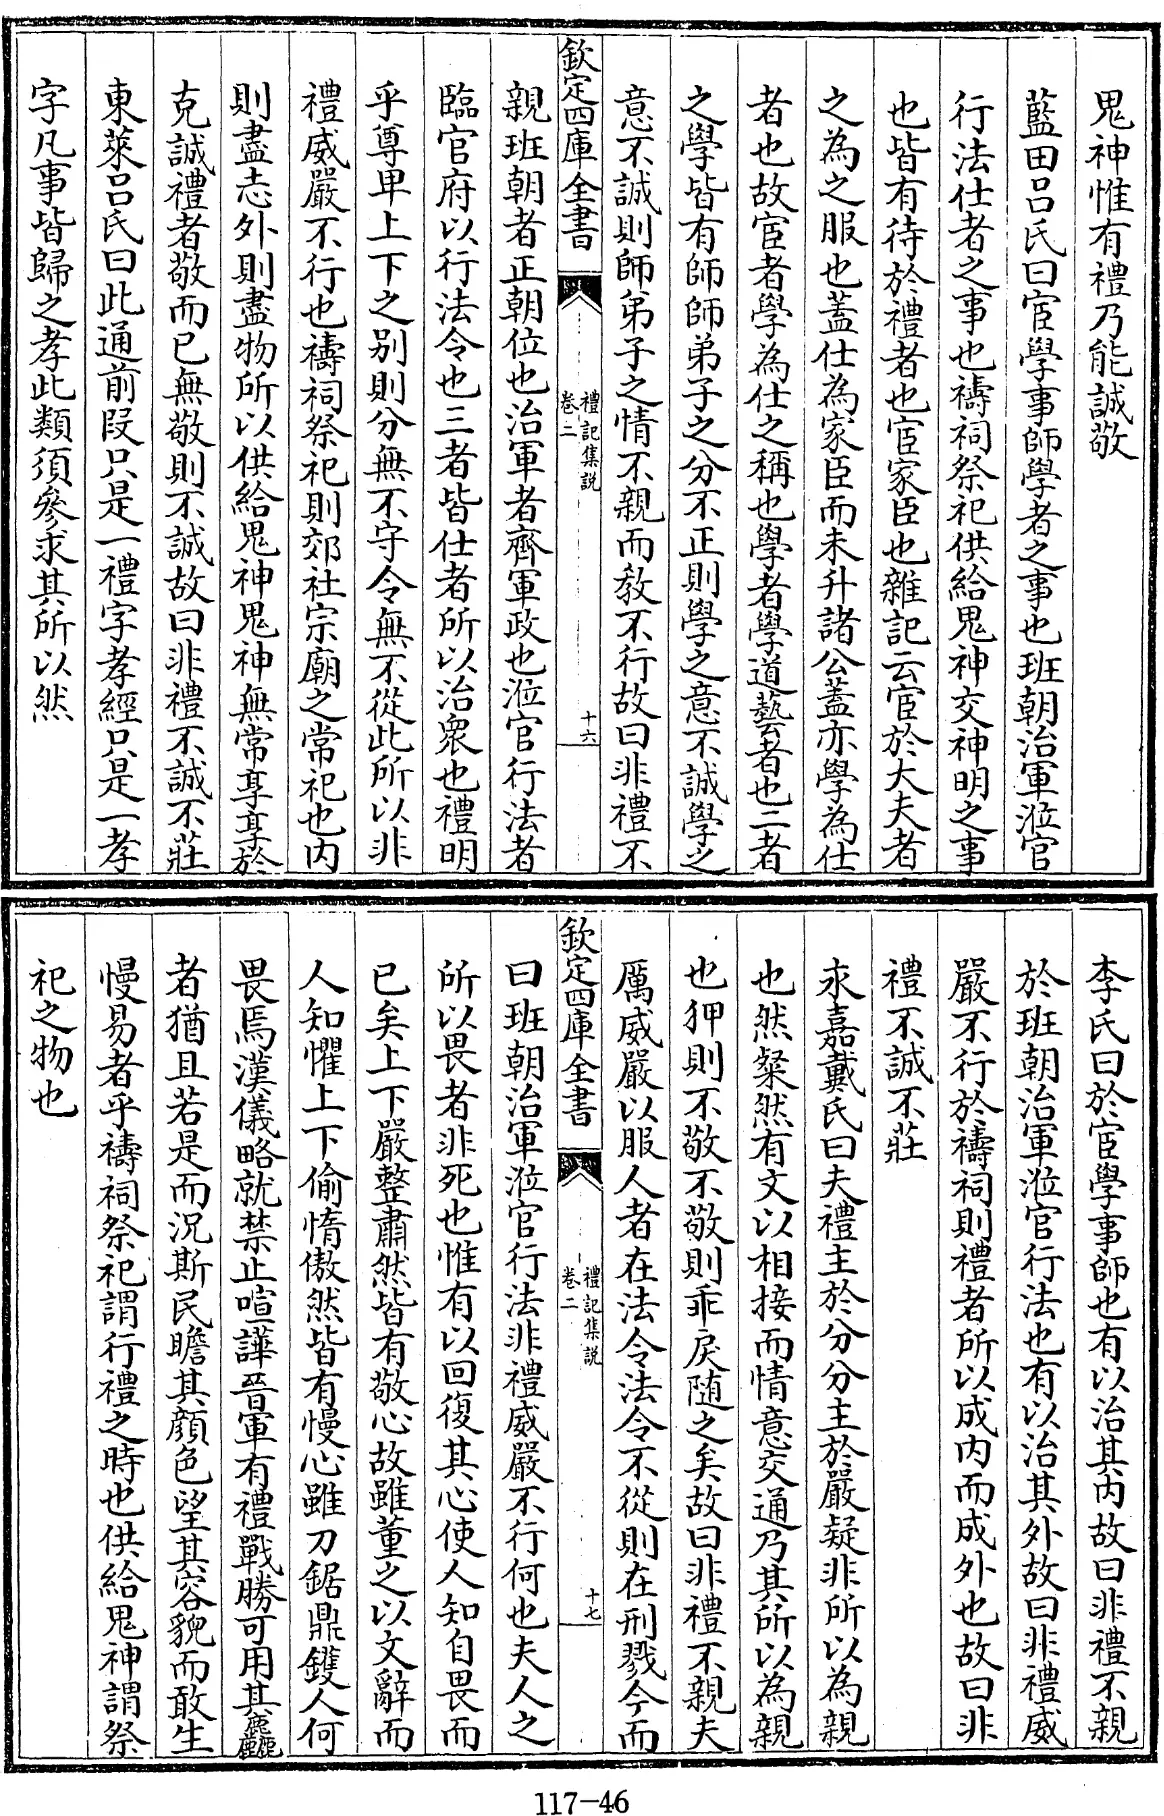 鬼神惟有禮乃能誠敬
藍田呂氏曰宦學事師學者之事也班朝治軍涖官
行法仕者之事也禱祠祭祀供給鬼神交神明之事
也皆有待於禮者也宦家臣也雜記云宦於大夫者
之為之服也蓋仕為家臣而未升諸公蓋亦學為仕
者也故宦者學為仕之稱也學者學道藝者也二者
之學皆有師師弟子之分不正則學之意不誠學之
意不誠則師弟子之情不親而教不行故曰非禮不
欽定四庫全書
禮記集說
卷二
十六
親班朝者正朝位也治軍者齊軍政也涖官行法者
臨官府以行法令也三者皆仕者所以治衆也禮明
乎尊卑上下之别則分無不守令無不從此所以非
禮威嚴不行也禱祠祭祀則郊社宗廟之常祀也内
則盡志外則盡物所以供給鬼神鬼神無常享享於
克誠禮者敬而已無敬則不誠故曰非禮不誠不莊
東萊呂氏曰此通前段只是一禮字孝經只是一孝
字凡事皆歸之孝此類須參求其所以然
李氏曰於宦學事師也有以治其内故曰非禮不親
於班朝治軍涖官行法也有以治其外故曰非禮威
嚴不行於禱祠則禮者所以成内而成外也故曰非
禮不誠不莊
永嘉戴氏曰夫禮主於分分主於嚴疑非所以為親
也然粲然有文以相接而情意交通乃其所以為親
也狎則不敬不敬則乖戾随之矣故曰非禮不親夫
厲威嚴以服人者在法令法令不從則在刑戮今而
欽定四庫全書
禮記集說
卷二
十七
曰班朝治軍涖官行法非禮威嚴不行何也夫人之
所以畏者非死也惟有以回復其心使人知自畏而
已矣上下嚴整肅然皆有敬心故雖董之以文辭而
人知懼上下偷惰傲然皆有慢心雖刀鋸鼎鑊人何
畏焉漢儀略就禁止喧譁晉軍有禮戰勝可用其麤
者猶且若是而況斯民瞻其顔色望其容貌而敢生
慢易者乎禱祠祭祀謂行禮之時也供給鬼神謂祭
祀之物也
117-46